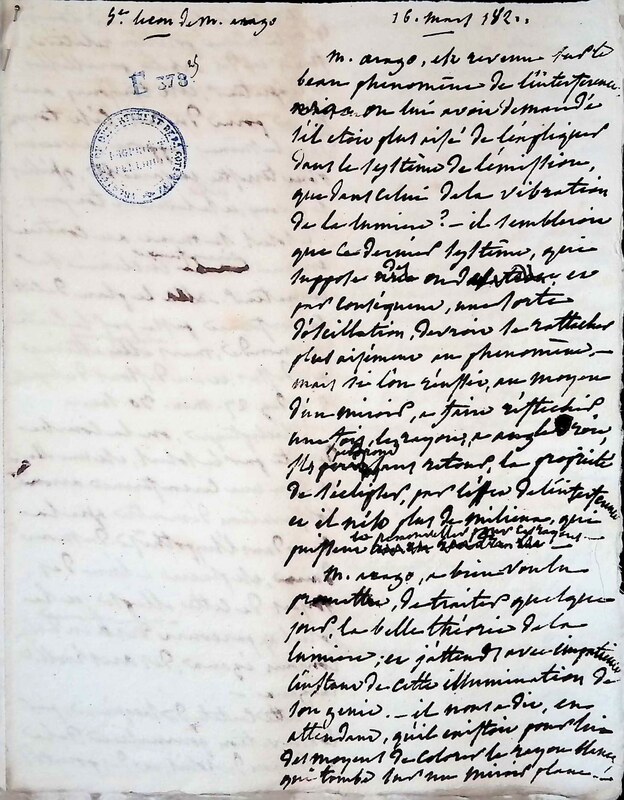 5e leçon de m. arago
16. mars 182
E 378
m. arago, est revenu sur le
beau phénomène de l'interférence
on lui avoit demandé
s'il étoit plus aisé de l'expliquer
dans le système de l'émission,
que dans celui de la vibration
de la lumiere? - il sembleroit
que ce dernier système, qui
suppose des ondes et
par conséquent, une sorte
d'oscillation, devroit se rattacher
plus aisément au phénomène. -
mais si l'on réussit, au moyen
d'un miroir, a faire réfléchir
une fois, les rayons, a angle droit,
ils perdront sans retour, la propriété
de s'éclipser, par l'effet de l'interférence
et il n'est plus de milieux, qui
puissent la renouveller pour ces rayons. -
m. arago, a bien voulu
promettre, de traiter quelque
jour, la belle théorie de la
lumiere; et j'attends avec impatience
l'instant de cette illumination de
son génie. - il nous a dit, en
attendant, qu'il existoit pour lui
des moyens de colorer le rayon blanc,
qui tombe sur un miroir plane. -